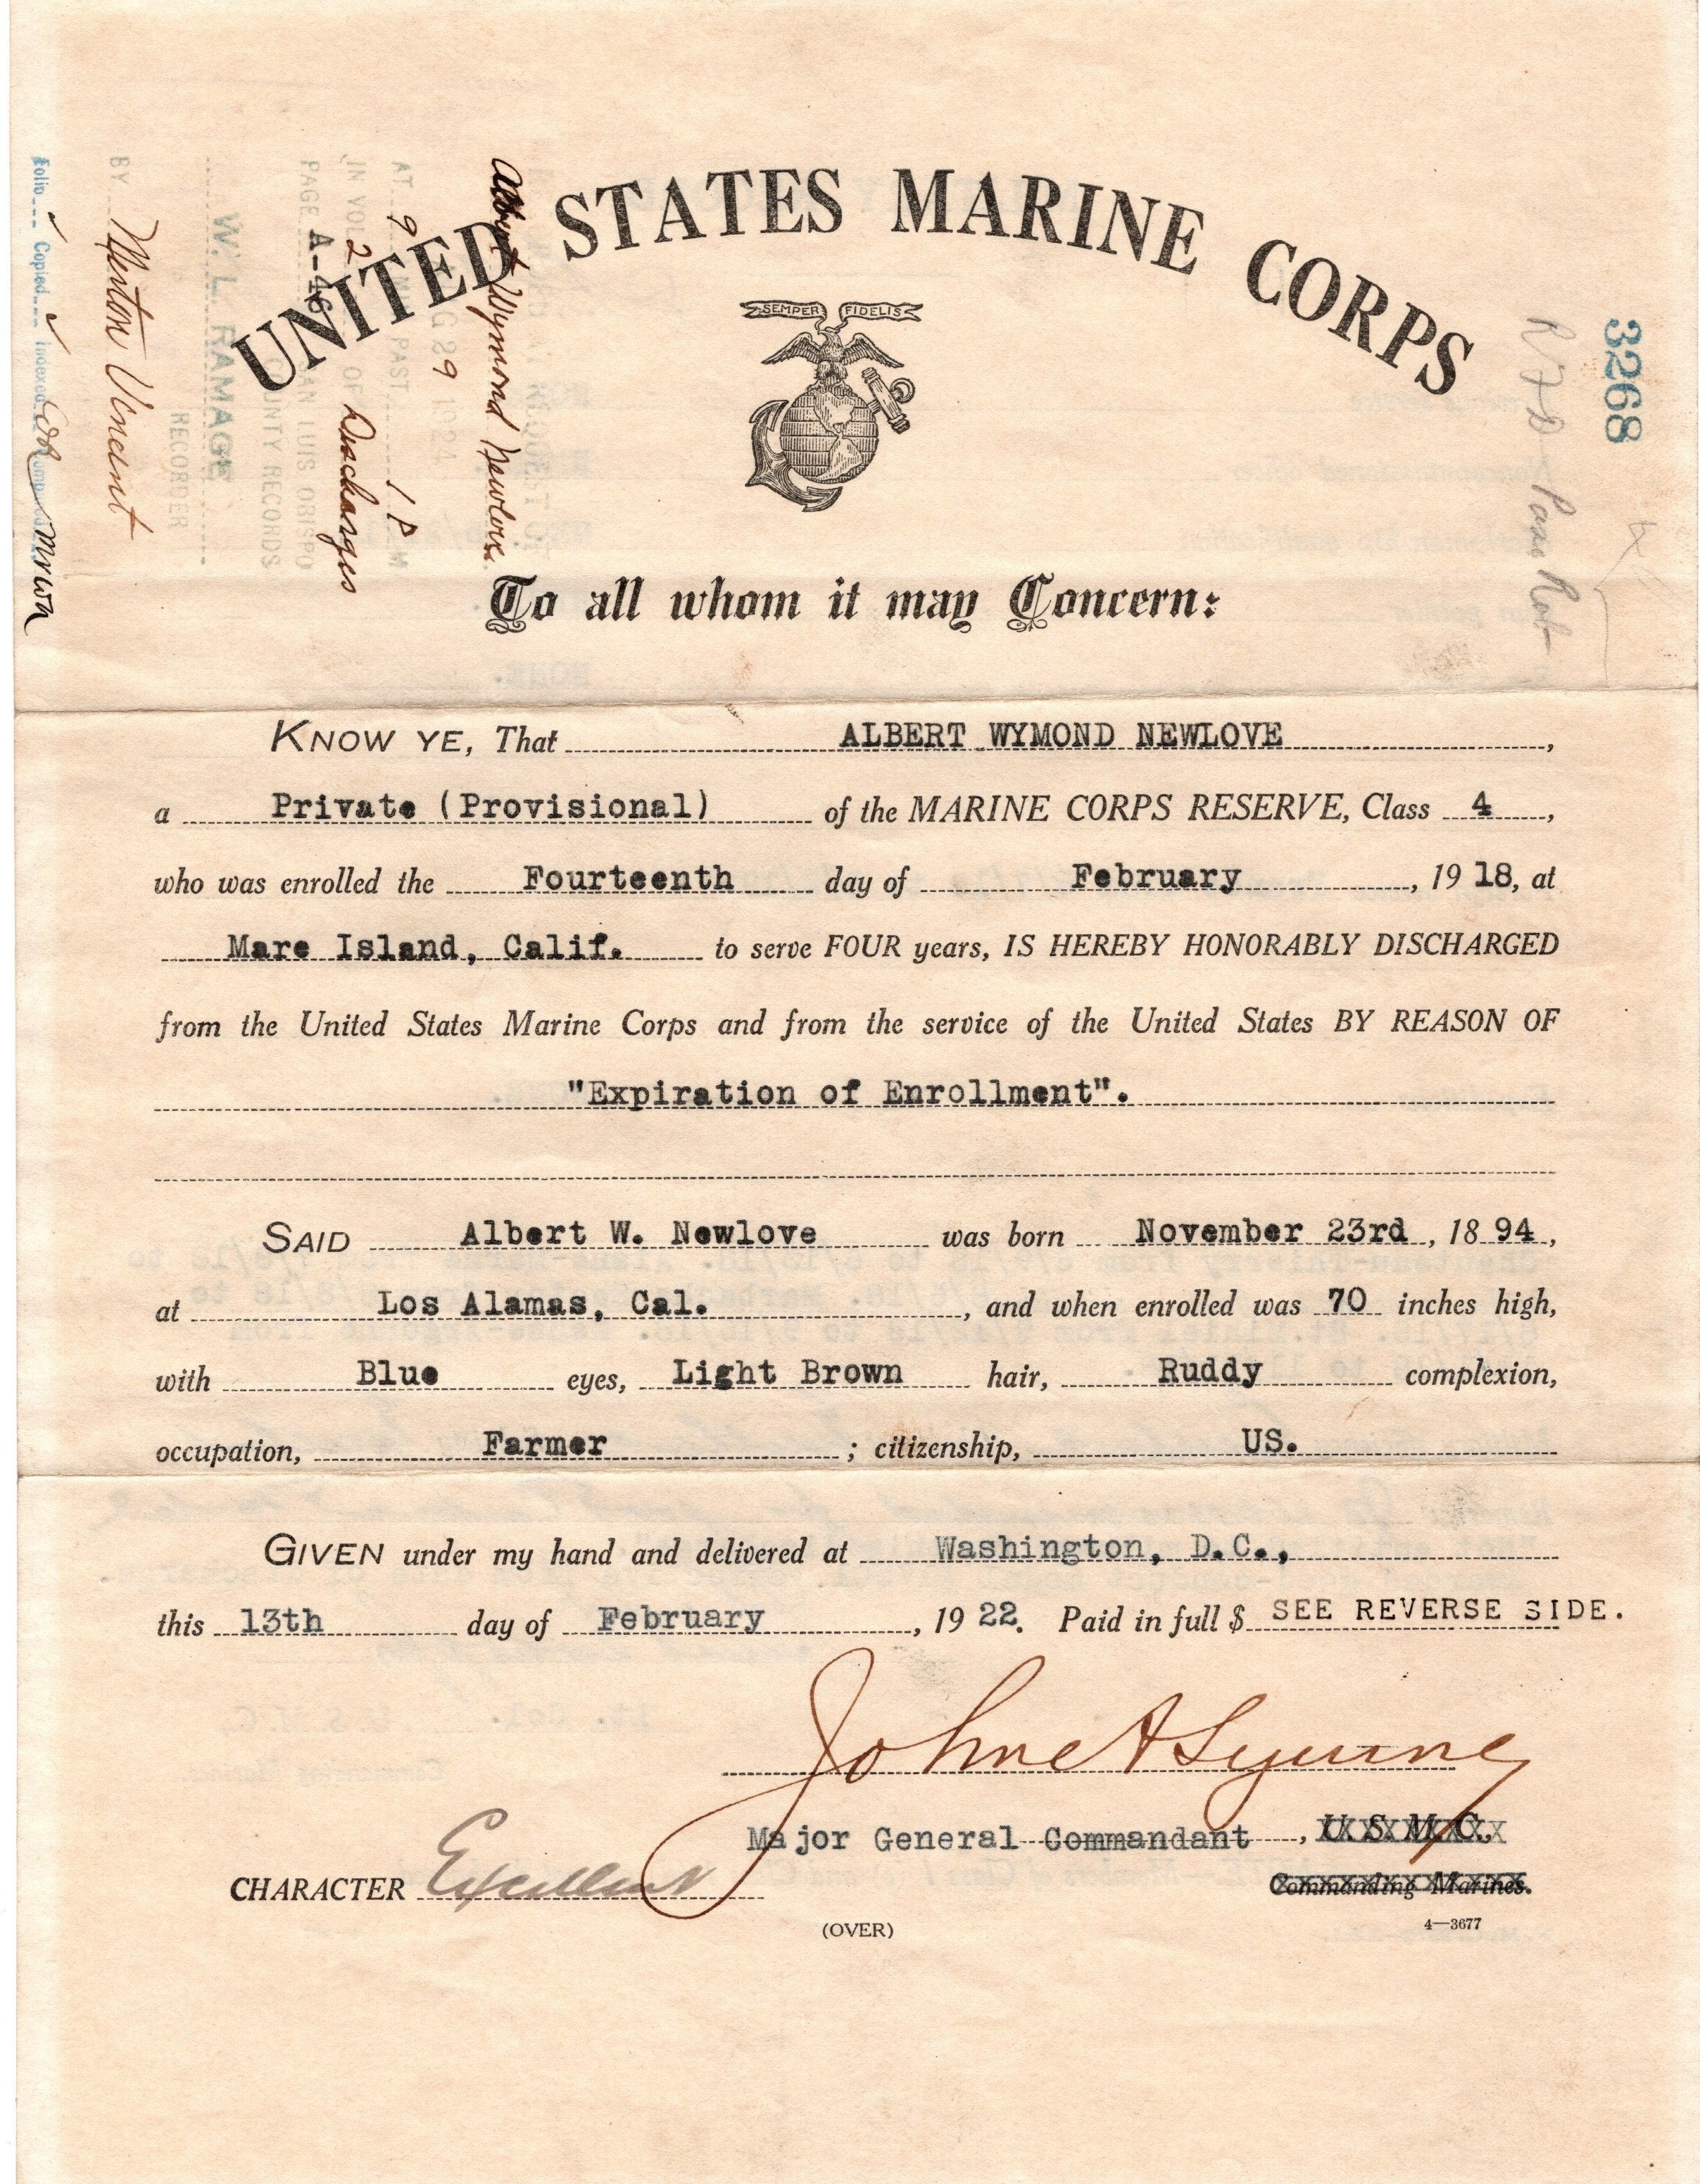 UNITED STATES MARINE CORPS
SEMPER FIDELIS
3268
Albert Wymond Newlove
AT 9 PAST 1 P M
IN VOL 2 OF Discharges
PAGE A-46 SAN LUIS OBISPO
COUNTY RECORDS
W. L. RAMAGE
RECORDER
BY Vincent
Folio Copied Indexed
To all whom it may Concern:
KNOW YE, That ALBERT WYMOND NEWLOVE,
a Private (Provisional) of the MARINE CORPS RESERVE, Class 4,
who was enrolled the Fourteenth day of February, 1918, at
Mare Island, Calif. to serve FOUR years, IS HEREBY HONORABLY DISCHARGED
from the United States Marine Corps and from the service of the United States BY REASON OF
"Expiration of Enrollment".
SAID Albert W. Newlove was born November 23rd, 1894,
at Los Alamas, Cal., and when enrolled was 70 inches high,
with Blue eyes, Light Brown hair, Ruddy complexion,
occupation, Farmer; citizenship, US.
GIVEN under my hand and delivered at Washington, D.C.,
this 13th day of February, 1922. Paid in full $ SEE REVERSE SIDE.
John A Lejeune
Major General Commandant, U. S. M. C.,
CHARACTER Excellent
Commanding Marines.
(OVER)
4—3677